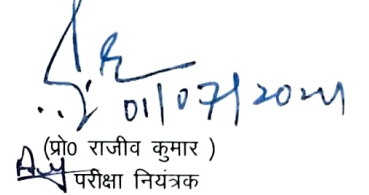 01/07/2024
(प्रो० राजीव कुमार )
परीक्षा नियंत्रक